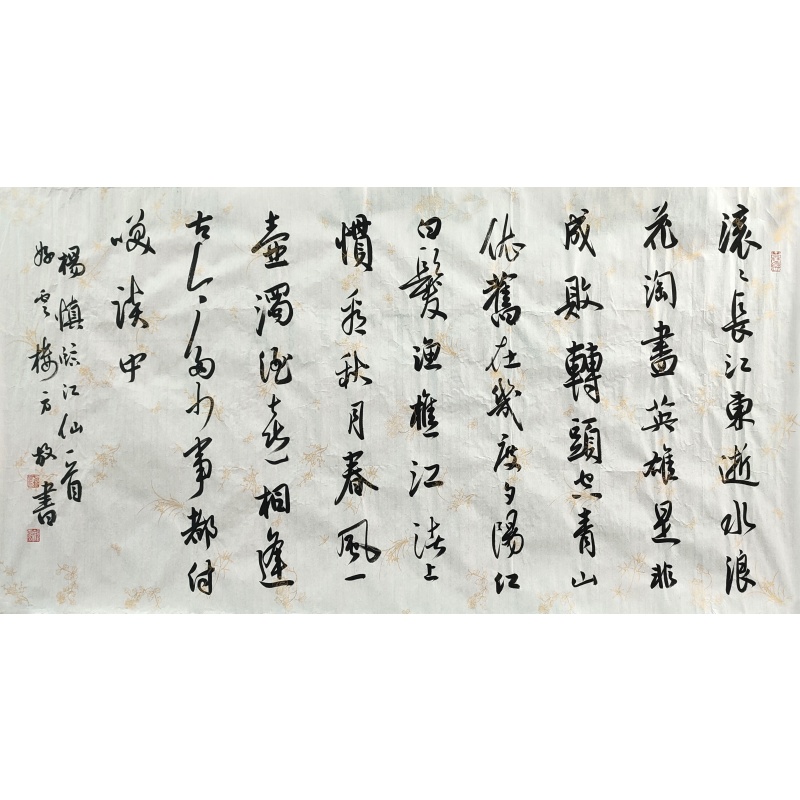 滚〻長江東逝水浪
花淘盡英雄是非
成敗轉頭空青山
依舊在幾度夕陽红
白髮渔樵江渚上
慣看秋月春風一
壶濁酒喜相逢
古今多少事都付
笑談中
楊慎临江仙一首
方敬書